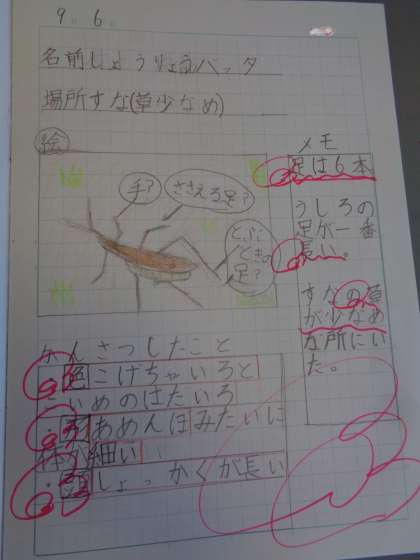 9. 6.
名前しょうりょうバッタ
場所すな(草少なめ)
絵
手?
ささえる足?
とぶ
ときの
足?
メモ
足は6本
うしろの
足が一番
長い。
すなの草
が少なめ
な所にい
た。
かんさつしたこと
・色こげちゃいろと
こいめのはだいろ
・形あめんぼみたいに
体が細い
・頭しょっかくが長い